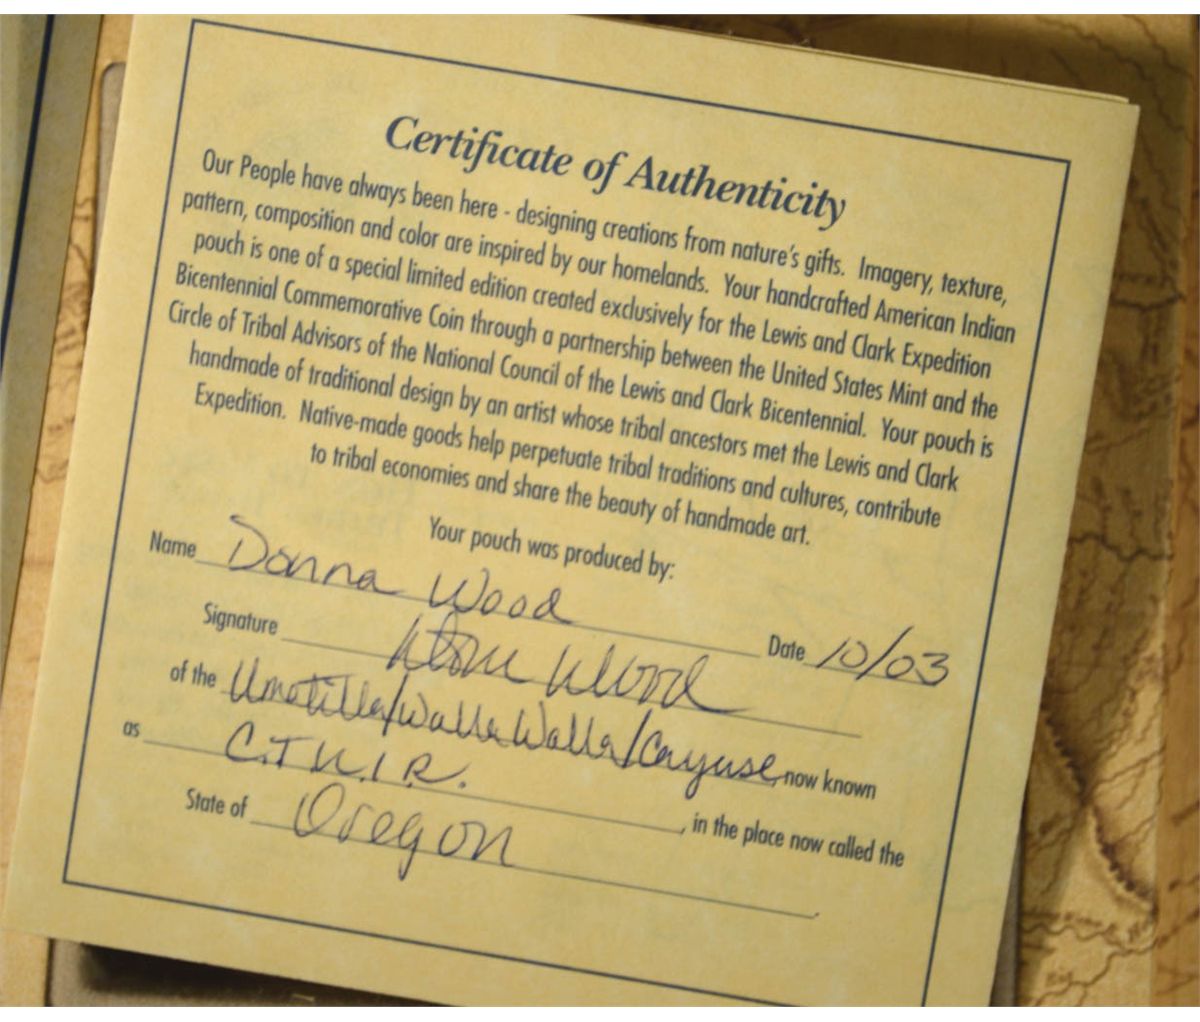 Certificate of Authenticity
Our People have always been here - designing creations from nature's gifts. Imagery, texture,
pattern, composition and color are inspired by our homelands. Your handcrafted American Indian
pouch is one of a special limited edition created exclusively for the Lewis and Clark Expedition
Bicentennial Commemorative Coin through a partnership between the United States Mint and the
Circle of Tribal Advisors of the National Council of the Lewis and Clark Bicentennial. Your pouch is
handmade of traditional design by an artist whose tribal ancestors met the Lewis and Clark
Expedition. Native-made goods help perpetuate tribal traditions and cultures, contribute
to tribal economies and share the beauty of handmade art.
Your pouch was produced by:
Name Donna Wood Date 10/03
Signature Wood
of the Umatilla/Walla Walla/Cayuse, now known
as C.T.U.I.R. , in the place now called the
State of Oregon .